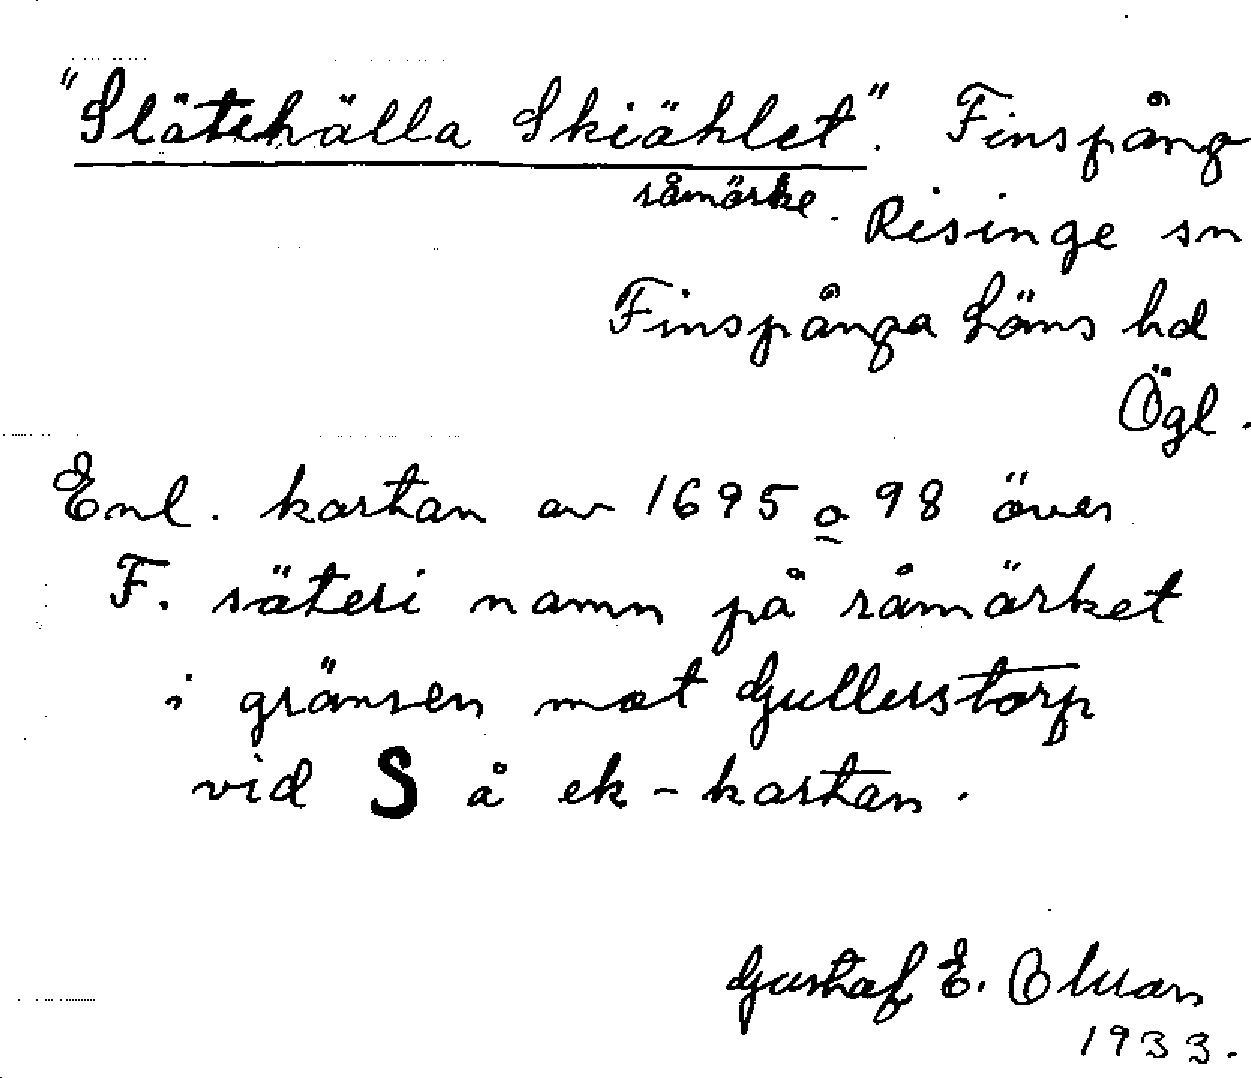 "Slätehälla Skiählet". Finspång
råmärke. Risinge sn
Finspånga Läns hd
Ögl.
Enl. kartan av 1695 o 98 över
F. säteri namn på råmärket
i gränsen mot Gullerstorp
vid S å ek-kartan.
Gustaf E.
1933.